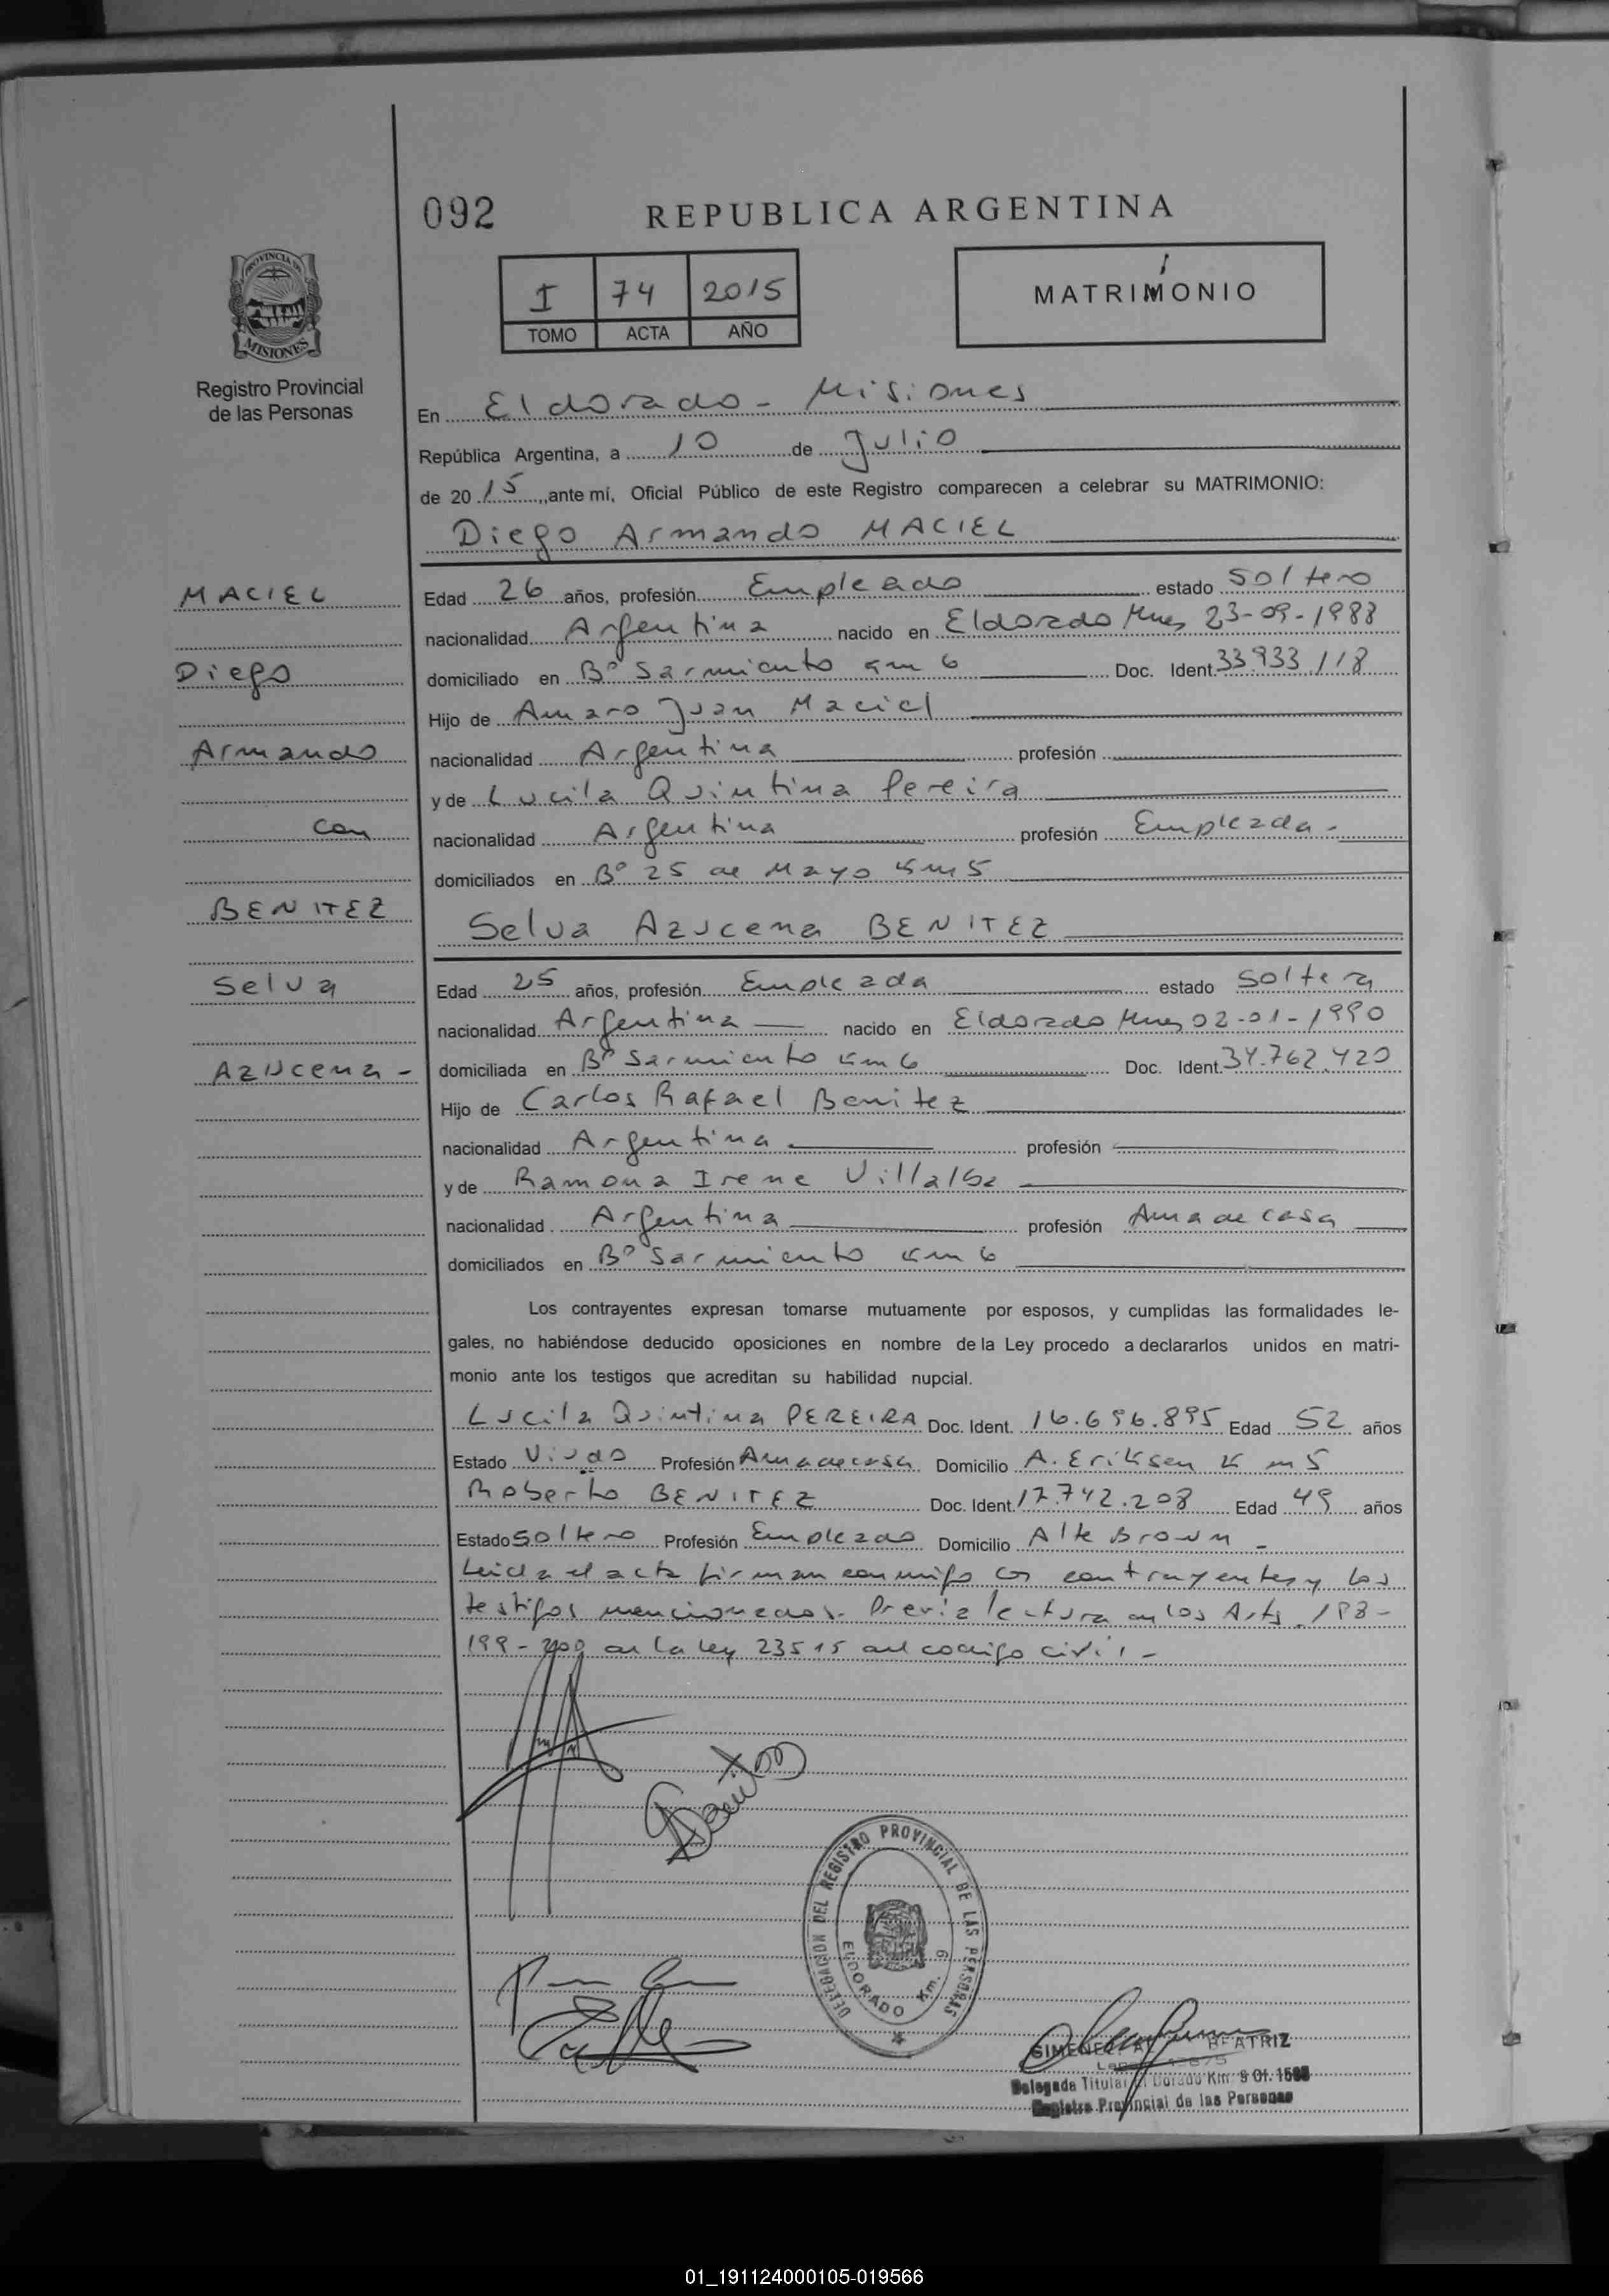 092
REPUBLICA ARGENTINA
I 74 2015
TOMO ACTA AÑO
MATRIMONIO
PROVINCIA DE
MISIONES
Registro Provincial
de las Personas
En Eldorado - Misiones
República Argentina, a 10 de Julio
de 20 15, ante mí, Oficial Público de este Registro comparecen a celebrar su MATRIMONIO:
Diego Armando MACIEL
MACIEL
Diego
Armando
con
BENITEZ
Selva
Azucena -
Edad 26 años, profesión Empleado estado Soltero
nacionalidad Argentina nacido en Eldorado Mnes 23-09-1988
domiciliado en Bº Sarmiento Km 6 Doc. Ident. 33.933.118
Hijo de Amaro Juan Maciel
nacionalidad Argentina profesión
y de Lucila Quintina Pereira
nacionalidad Argentina profesión Empleada -
domiciliados en Bº 25 de Mayo Km 5
Selva Azucena BENITEZ
Edad 25 años, profesión Empleada estado Soltera
nacionalidad Argentina nacido en Eldorado Mnes 02-01-1990
domiciliada en Bº Sarmiento Km 6 Doc. Ident. 34.762.420
Hijo de Carlos Rafael Benitez
nacionalidad Argentina profesión
y de Ramona Irene Villalba
nacionalidad Argentina profesión Ama de casa
domiciliados en Bº Sarmiento Km 6
Los contrayentes expresan tomarse mutuamente por esposos, y cumplidas las formalidades le-
gales, no habiéndose deducido oposiciones en nombre de la Ley procedo a declararlos unidos en matri-
monio ante los testigos que acreditan su habilidad nupcial.
Lucila Quintina PEREIRA Doc. Ident. 16.696.895 Edad 52 años
Estado Viuda Profesión Ama de casa Domicilio A. Eriksen K m 5
Roberto BENITEZ Doc. Ident. 17.742.208 Edad 49 años
Estado Soltero Profesión Empleado Domicilio Alte Brown -
Leida el acta firman conmigo los contrayentes y los
testigos mencionados. Previa lectura de los Arts. 198-
199-200 de la ley 23515 del codigo civil -
Benitez
DELEGACION DEL REGISTRO PROVINCIAL DE LAS PERSONAS
ELDORADO Km. 9
GIMENEZ BEATRIZ
Delegada Titular El Dorado Km. 9 Of.
Registro Provincial de las Personas
01_191124000105-019566